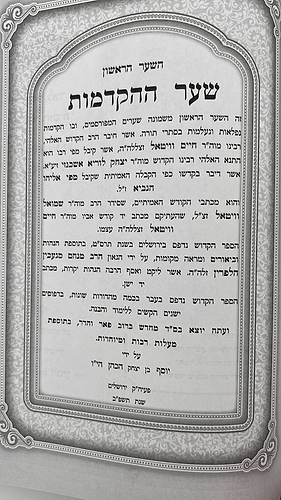 השער הראשון
שער ההקדמות
זה השער הראשון משמונה שערים המפורסמים, ובו הקדמות
נפלאות ונעלמות בסתרי תורה, אשר חיבר הרב הקדוש האלהי,
רבינו מוה"ר חיים וויטאל זצללה"ה, אשר קיבל מפי רבו הוא
התנא האלהי רבינו הקדוש מוה"ר יצחק לוריא אשכנזי זיע"א,
אשר דיבר בקדשו כפי הקבלה האמיתית שקיבל מפי אליהו
הנביא ז"ל.
והוא מכתבי הקודש האמיתיים, שסידר הרב מוה"ר שמואל
וויטאל זצ"ל, שהעתיקם מכתב יד קודש אביו מוה"ר חיים
וויטאל זצללה"ה עצמו.
הספר הקדוש נדפס בירושלים בשנת תרס"ט, בתוספת הגהות
וביאורים ומראה מקומות, על ידי הגאון הרב מנחם מנעכין
הלפרין זלה"ה. אשר ליקט ואסף הרבה הגהות יקרות, מכתב
יד ישן.
הספר הקדוש נדפס בעבר בכמה מהדורות שונות, בדפוסים
ישנים הקשים ללימוד והבנה.
ועתה יוצא בס"ד מחדש ברוב פאר והדר, בתוספת
מעלות רבות ומיוחדות.
על ידי
יוסף בן יצחק הכהן הי"ו
פעיה"ק ירושלים
שנת תשפ"ב